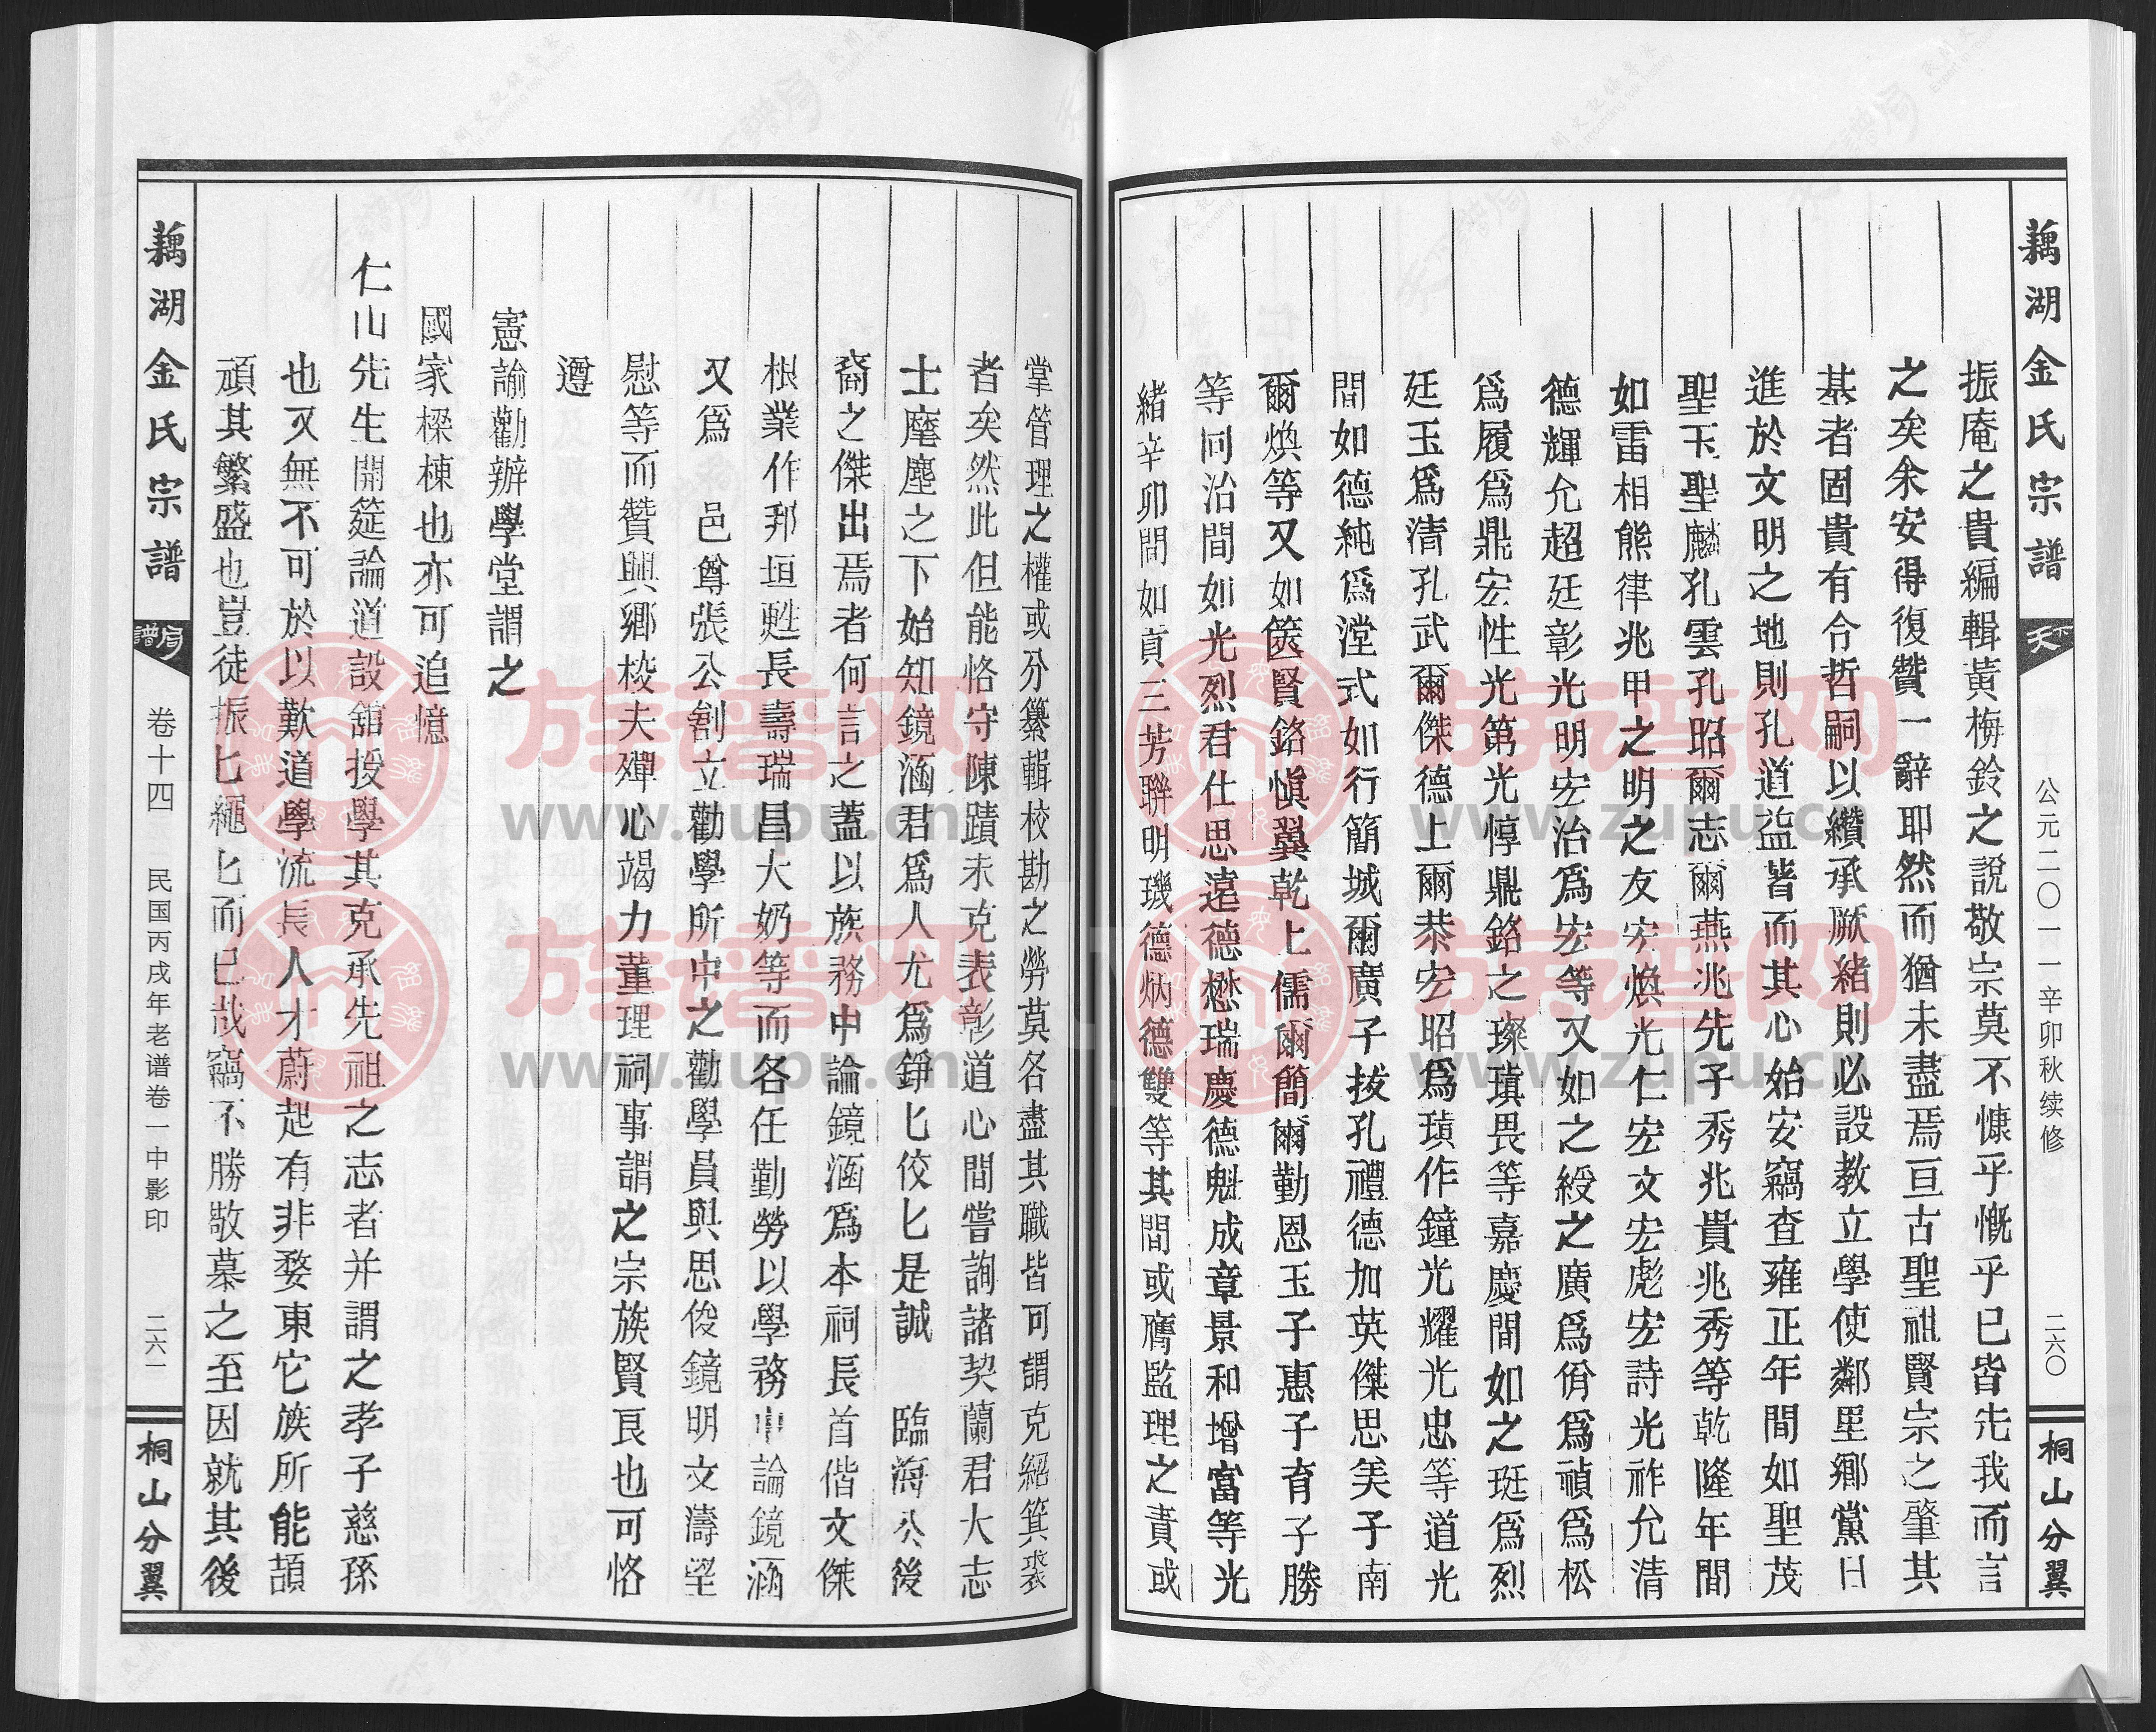 藕湖金氏宗譜
天下
公元二〇一一辛卯秋续修
二六〇
桐山分翼
振庵之貴編輯黃梅鈴之說敬宗莫不慷乎慨乎已皆先我而言
之矣余安得復贊一辭耶然而猶未盡焉亘古聖祖賢宗之肇其
基者固貴有合哲嗣以纘承厥緒則必設教立學使鄰里鄉黨日
進於文明之地則孔道益皆而其心始安竊查雍正年間如聖茂
聖玉聖麟孔雲孔昭爾志爾燕兆先子秀兆貴兆秀等乾隆年間
如雷相熊律兆甲之明之友宏煥光仁宏文宏彪宏詩光祚允清
德輝允超廷彰光明宏治為宏等又如之綬之廣爲佾爲禎爲松
爲履爲鼎宏性光第光惇鼎銘之璨瑱畏等嘉慶間如之珽爲烈
廷玉爲清孔武爾傑德上爾恭宏昭爲璜作鐘光耀光忠等道光
間如德純爲漟式如行簡城爾廣子拔孔禮德加英傑思美子南
爾煥等又如篋賢銘愼翼乾上儒爾簡爾勤恩玉子惠子育子勝
等同治間如光烈君仕思遠德懋瑞慶德魁成章景和增富等光
緒辛卯間如貢三芳聯明璣德炳德雙等其間或膺監理之責或
掌管理之權或分纂輯校勘之勞莫各盡其職皆可謂克紹箕裘
者矣然此但能恪守陳蹟未克表彰道心間嘗詢諸契蘭君大志
士塵塵之下始知鏡涵君爲人尤爲錚匕佼匕是誠 臨海公後
裔之傑出焉者何言之蓋以族務中論鏡涵爲本祠長首偕文傑
根業作邦垣甦長壽瑞昌大奶等而各任勤勞以學務中論鏡涵
又爲 邑尊張公劄立勸學所中之勸學員與思俊鏡明文濤堃
慰等而贊興鄉梭夫殫心竭力董理祠事謂之宗族賢良也可恪
遵
憲諭勸辦學堂謂之
國家樑棟也亦可追憶
仁山先生開筵論道設舘授學其克承先祖之志者并謂之孝子慈孫
也又無不可於以歎道學流長人才蔚起有非婺東它族所能頡
頏其繁盛也豈徒振匕繩匕而已哉竊不勝敬慕之至因就其後
藕湖金氏宗譜
譜局
卷十四
民国丙戌年老谱卷一中影印
二六一
桐山分翼
族谱网
www.zupu.cn
族谱网
www.zupu.cn
族谱网
www.zupu.cn
族谱网
www.zupu.cn